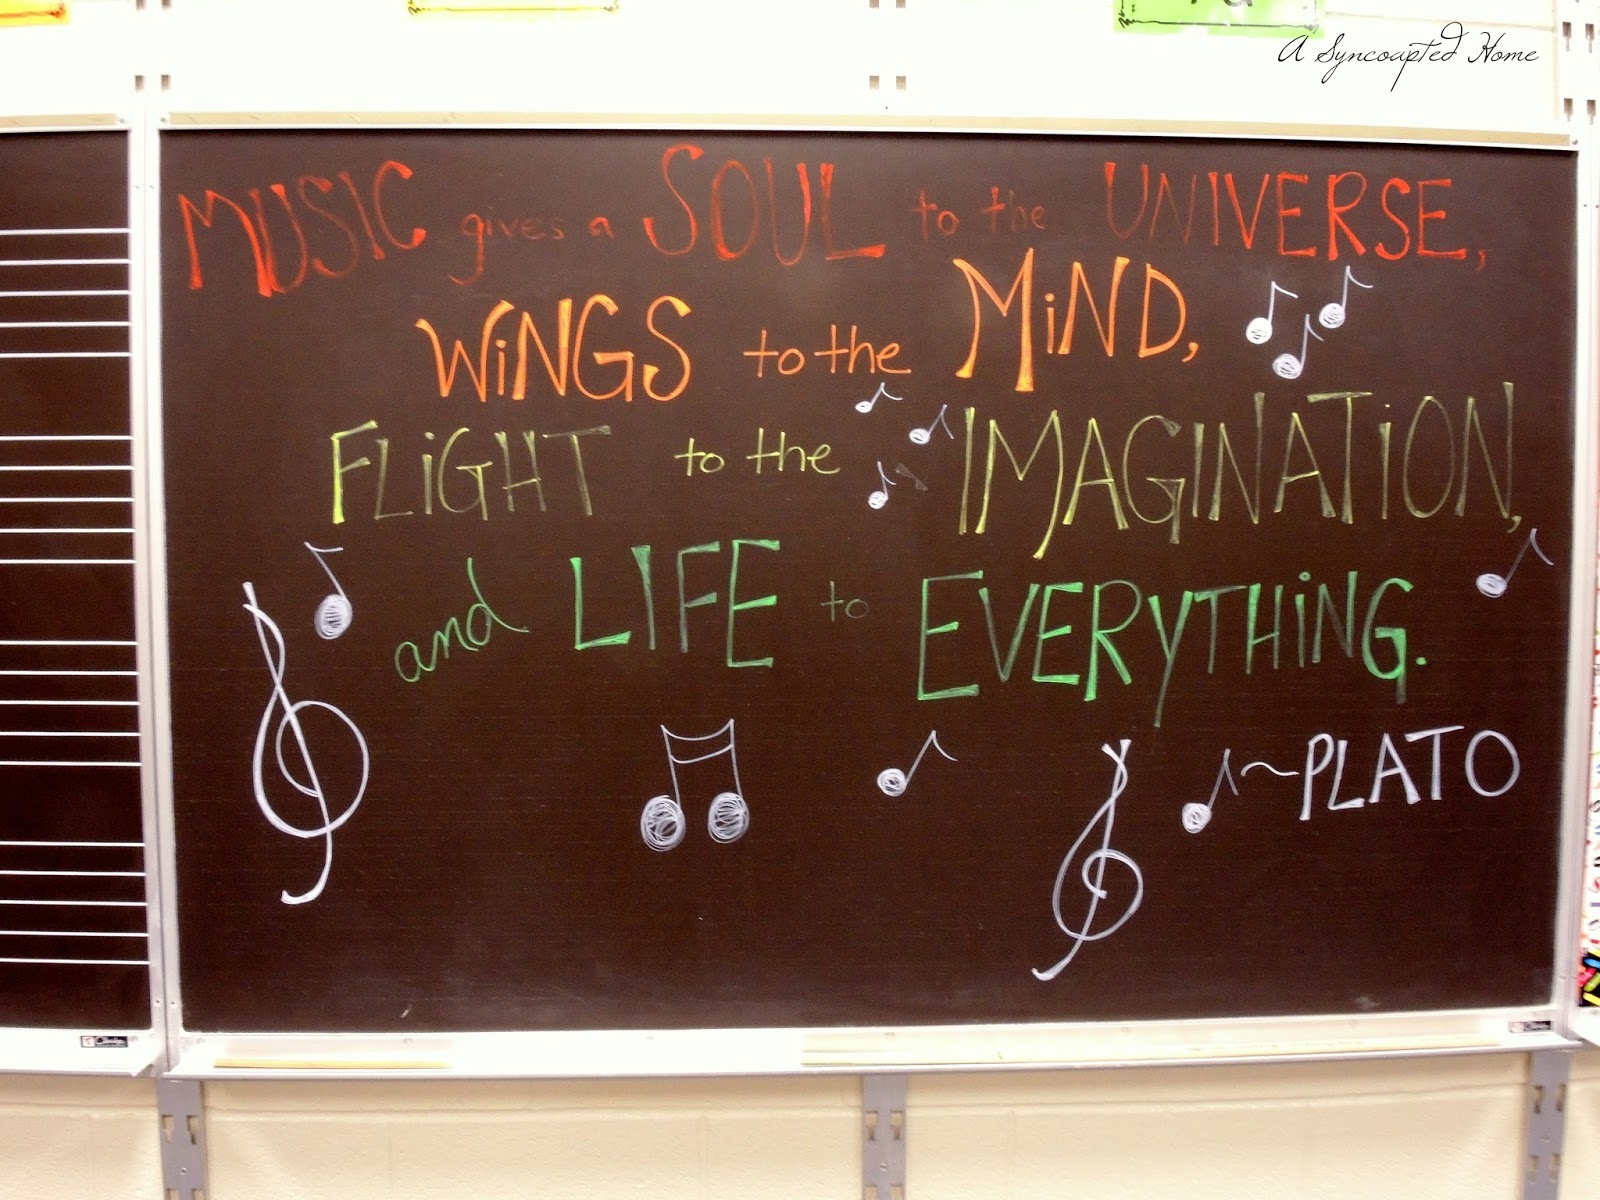 A Syncoapted Home
MUSIC gives a SOUL to the UNIVERSE,
WiNGS to the MiND,
FLiGHT to the IMAGINATiON,
and LIFE to EVERYTHiNG.
~PLATO